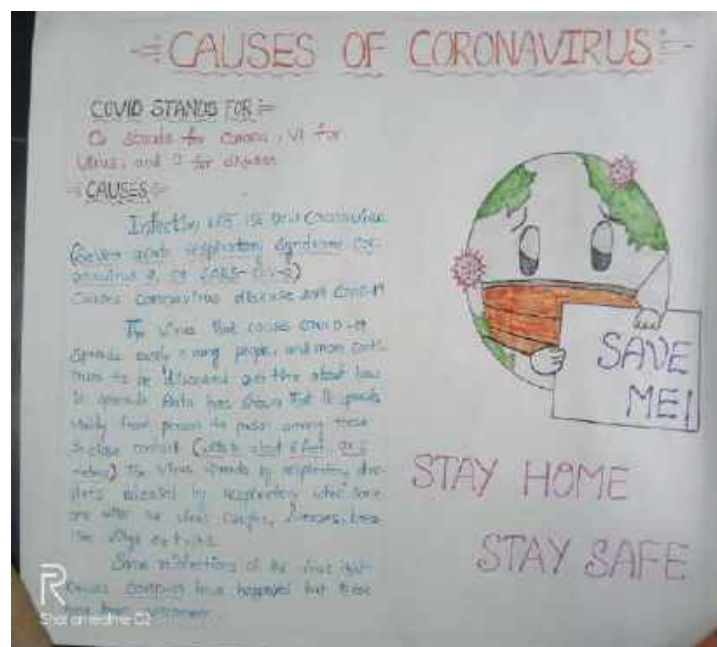 CAUSES OF CORONAVIRUS
COVID STANDS FOR
Co stands for corona, VI for
virus, and D for disease
CAUSES
Infection
(Severe acute respiratory syndrome co-
ronavirus 2, or SARS-CoV-2)
Causes coronavirus disease COVID-19
The virus that causes COVID-19
spreads easily among people, and more conti-
to be discovered over time about how
it spreads Data has shown that it spreads
mainly from person to person among those
in close contact (within about 6 feet, or 2
The virus spreads by respiratory dro-
plets released
with the virus coughs, sneezes,
Some reinfections of the virus that
causes COVID-19 have happened but these
have been uncommon.
SAVE
ME!
STAY HOME
STAY SAFE
R
Shot on realme C2